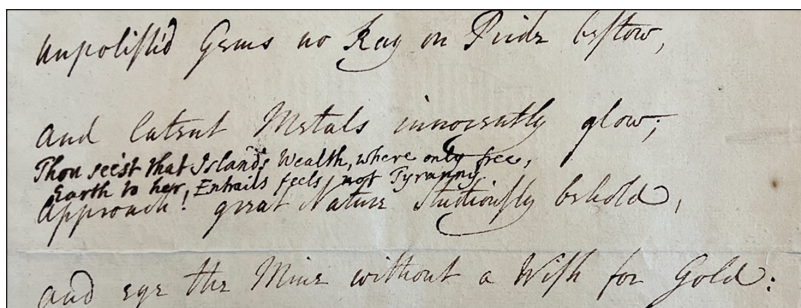 Unpolish'd Gems no Ray on Pride bestow,
and latent Metals innocently glow;
Thou see'st that Island's Wealth, where only free,
Earth to her Entrails feels not Tyranny.
Approach! great Nature studiously behold,
and eye the Mine without a Wish for Gold: